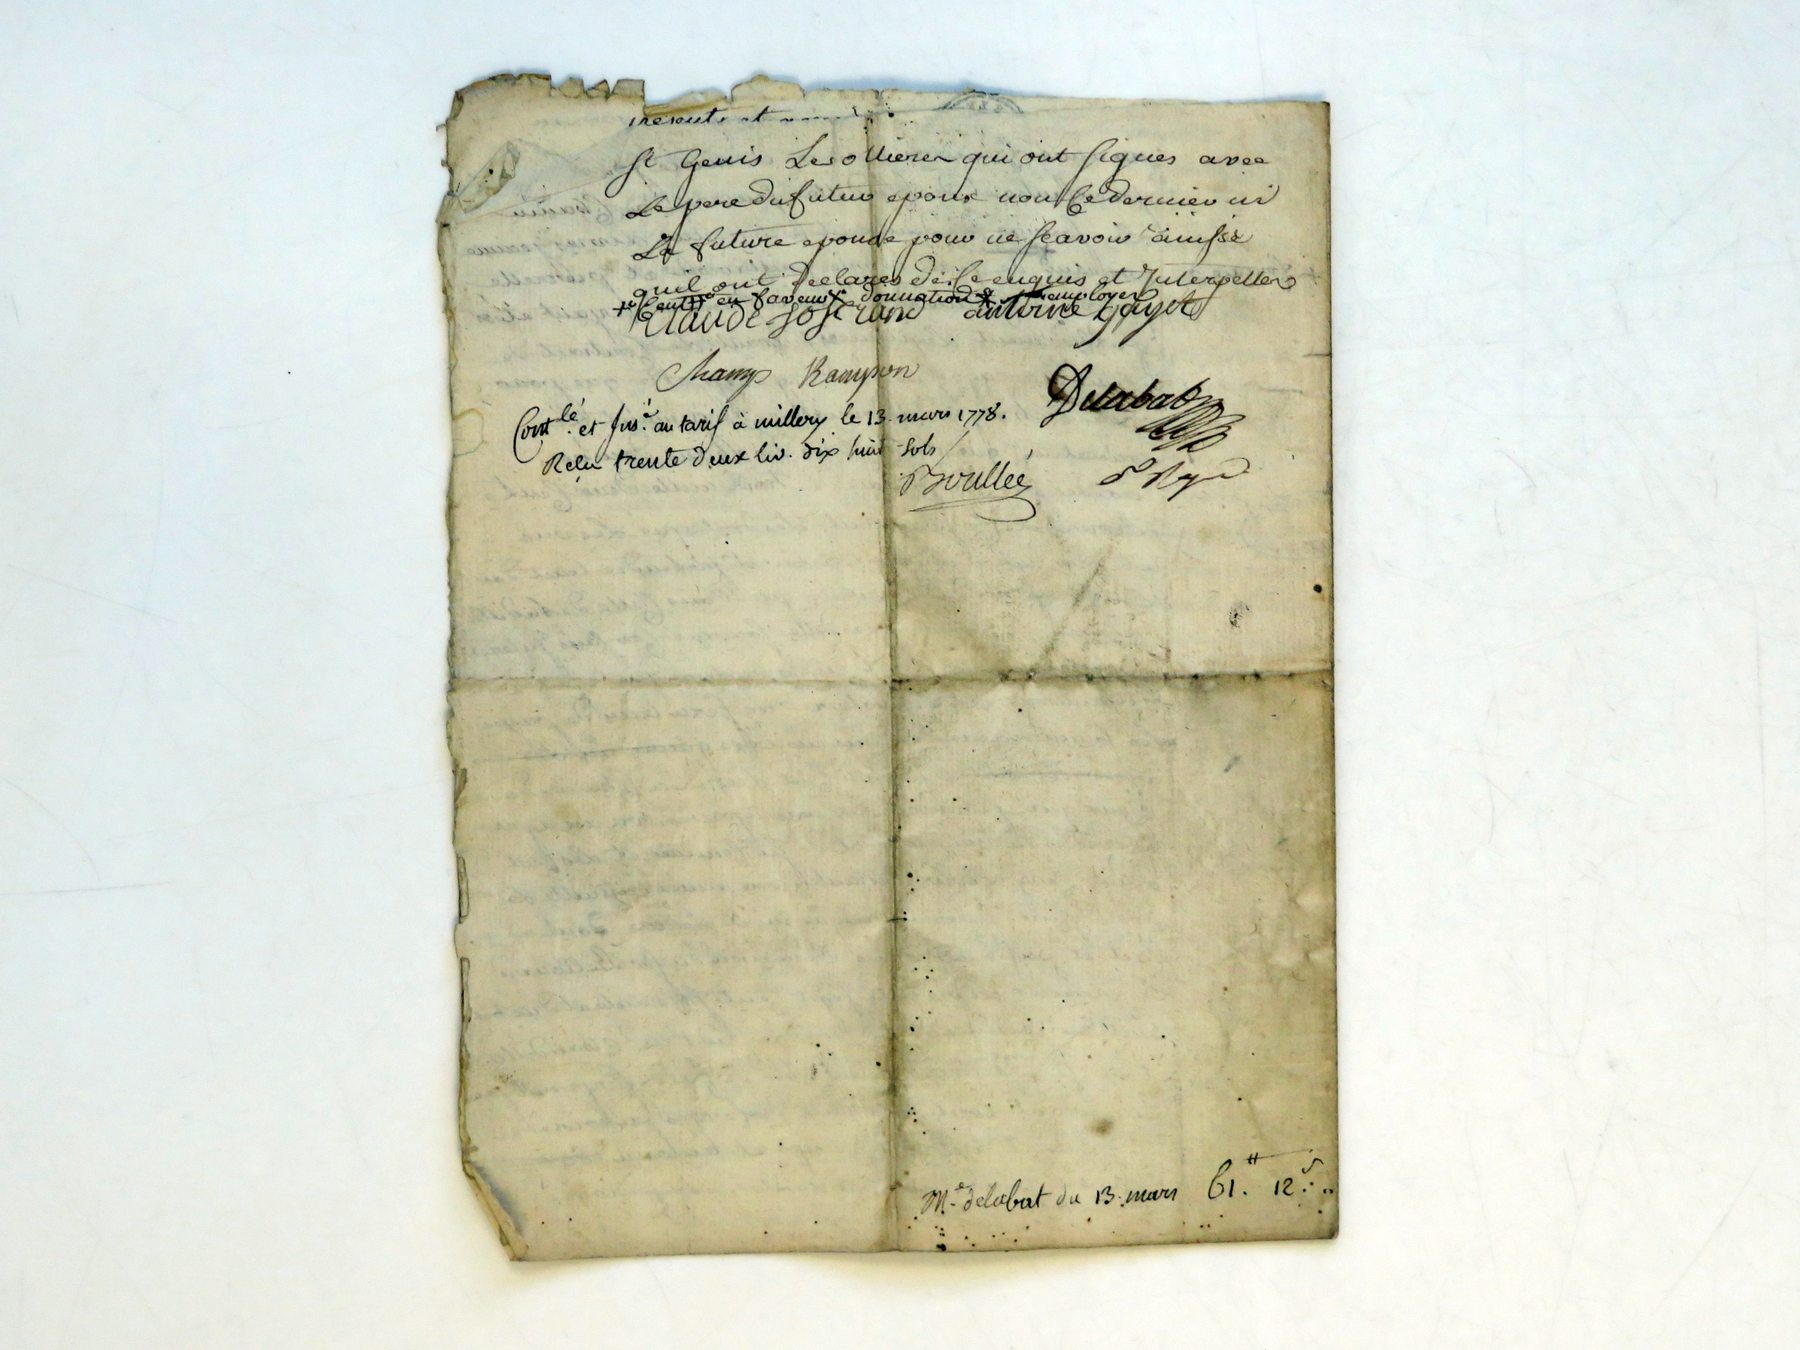 presents et
St Genis Les ollieres qui ont signes avec
Le pere du futur epoux non Ce dernier ni
La future epouse pour ne scavoir ainssi
quil ont declares de ce enquis et Interpelles
en faveur donnation employer
CLAUDE JOSERAND antoine Gayet
Champ Rampon
Delabat
Contlé. et Insé. au tarif à millery le 13. mars 1778.
Reçu trente deux liv. dix huit sols
Boullée
Me. delabat du 13. mars 61.# 12.s